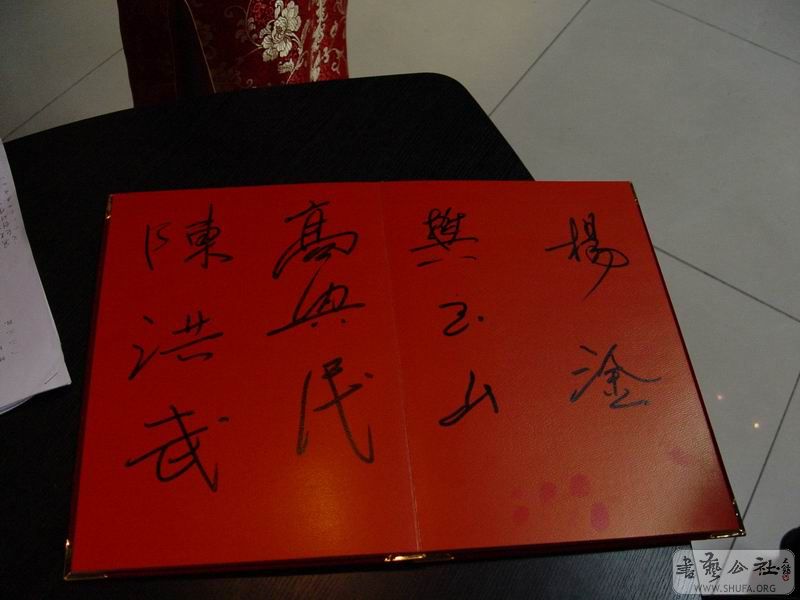 楊淦
樊玉山
高興民
陳洪武
書藝公社
WWW.SHUFA.ORG